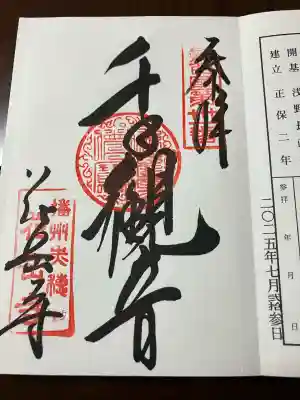 開基 浅野長直
建立 正保二年
参拝 年 月 日
二〇二五年七月弐拾参日
奉拝
千手観音
花岳寺
播州赤穂